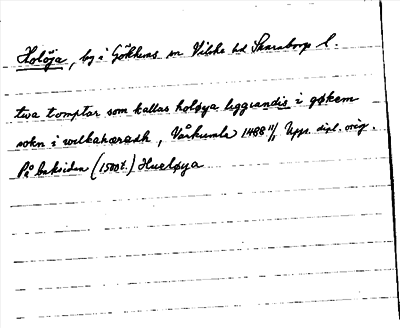 Holöja, by i Gökhems sn Vilske hd Skaraborgs l.
twa tomptar som kallas holøya liggiandis i gøkem
sokn i wilkahæradh, Vårkumla 1488 11/1 Upps. dipl. orig.
På baksidan (1500 t.) Hueløya